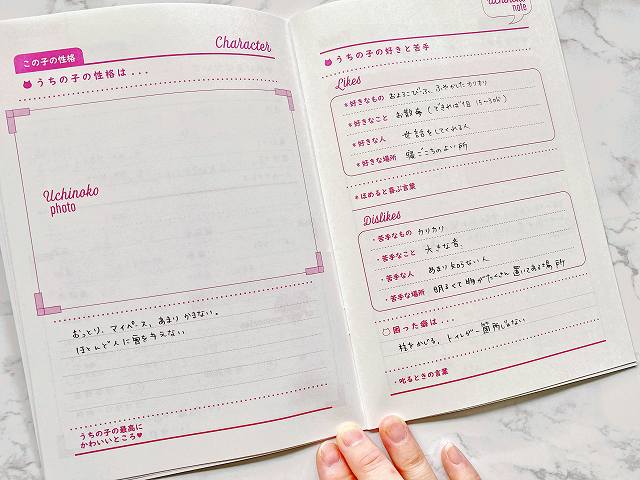 この子の性格
Character
うちの子の性格は・・・
Uchinoko
photo
おっとり、マイペース、あまりかまない。
ほとんど人に
うちの子の最高に
かわいいところ♥
Uchinoko
note
うちの子の好きと苦手
Likes
*好きなもの ふやかしたカリカリ
*好きなこと お散歩(できれば1日15~30分)
*好きな人 世話をしてくれる人
*好きな場所 寝ごこちのよい所
*ほめると喜ぶ言葉
Dislikes
・苦手なもの カリカリ
・苦手なこと 大きな音
・苦手な人 あまり知らない人
・苦手な場所 明るくて物がたくさん置いてある場所
困った癖は・・・
柱をかじる。トイレが一箇所じゃない
・叱るときの言葉